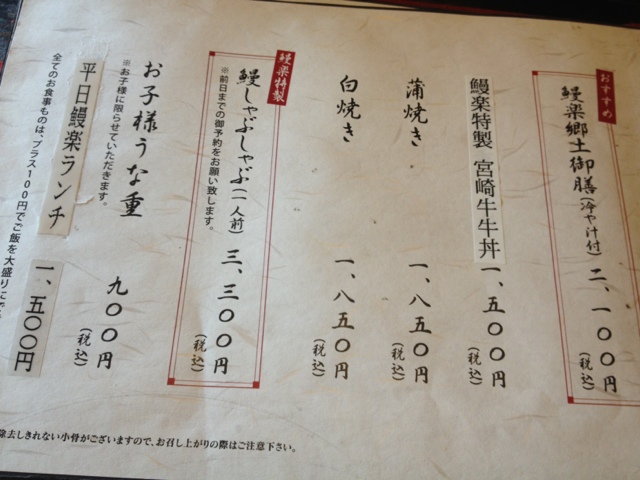 おすすめ
鰻楽郷土御膳(冷や汁付) 二、一〇〇円(税込)
鰻楽特製 宮崎牛牛丼 一、五〇〇円(税込)
蒲焼き 一、八五〇円(税込)
白焼き 一、八五〇円(税込)
鰻楽特製
鰻しゃぶしゃぶ(一人前) 三、三〇〇円(税込)
※前日までの御予約をお願い致します。
お子様うな重 九〇〇円(税込)
※お子様に限らせていただきます。
平日鰻楽ランチ 一、五〇〇円
全てのお食事ものは、プラス100円でご飯を大盛りに
除去しきれない小骨がございますので、お召し上がりの際はご注意下さい。